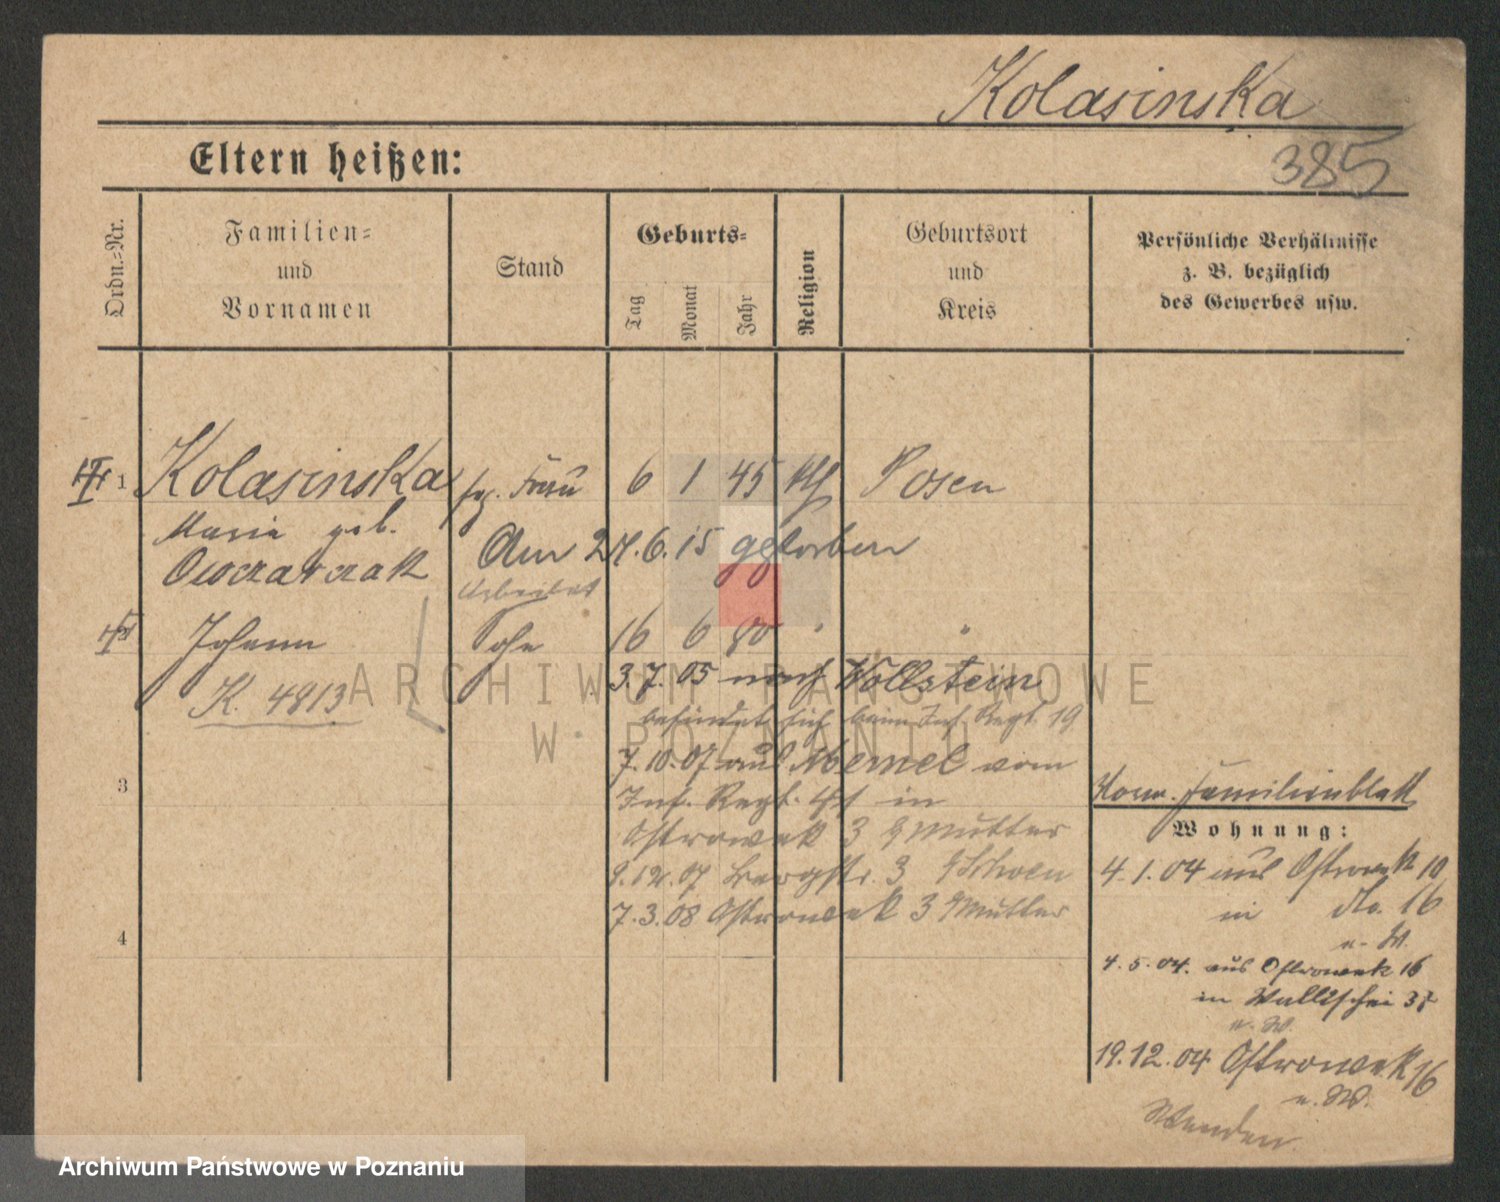 Kolasinska
385
Eltern heißen:
Ordn.-Nr.
Familien-
und
Vornamen
Stand
Geburts-
Tag
Monat
Jahr
Religion
Geburtsort
und
Kreis
Persönliche Verhältnisse
z. B. bezüglich
des Gewerbes usw.
1 Kolasinska Frau 6 1 45 kth Posen
Maria geb.
Owczarczak
Am 24.6.15 gestorben
Arbeiter
Johann Sohn 16 6 80 " "
K. 4813
3.7.05 nach Wollstein
befindet sich beim Inf. Regt. 19
7.10.07 aus Memel vom
3
Inf. Regt. 41 in
Ostrowek 3 Mutter
9.12.07 Bergstr. 3
7.3.08 Ostrowek 3 Mutter
4
Familienblatt
Wohnung:
4.1.04 aus Ostrowek 10
in No. 16
u. W.
4.5.04. aus Ostrowek 16
in Wallischei 37
u. W.
19.12.04 Ostrowek 16
u. W.
Wenden
ARCHIWUM PAŃSTWOWE
W POZNANIU
Archiwum Państwowe w Poznaniu